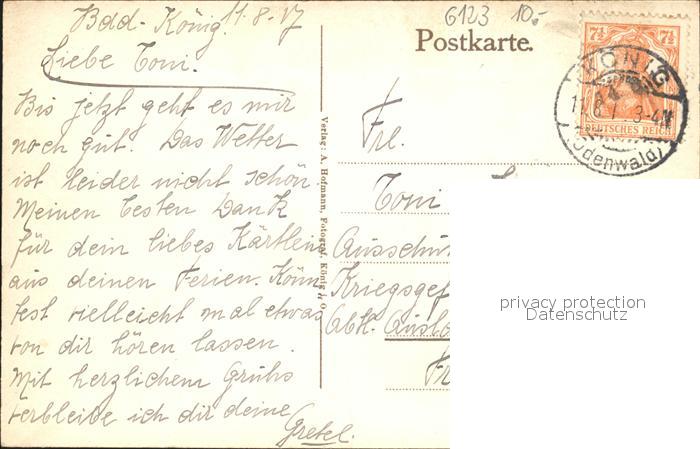 Bad-König. 11.8.17
Liebe Toni.
Bis jetzt geht es mir
noch gut. Das Wetter
ist leider nicht schön.
Meinen besten Dank
für dein liebes Kärtlein
aus deinen Ferien. Könn
test vielleicht mal etwas
von dir hören lassen.
Mit herzlichem Gruhs
verbleibe ich dir deine
Gretel.
Verlag: A. Hofmann, Fotograf, König i. O.
6123 10.-
Postkarte.
7½ 7½
DEUTSCHES REICH
KÖNIG
11.8.17. 3-4N
(Odenwald)
Frl.
Toni
Ausschu
Kriegsgef
Abt. Ausla
Fr
privacy protection
Datenschutz